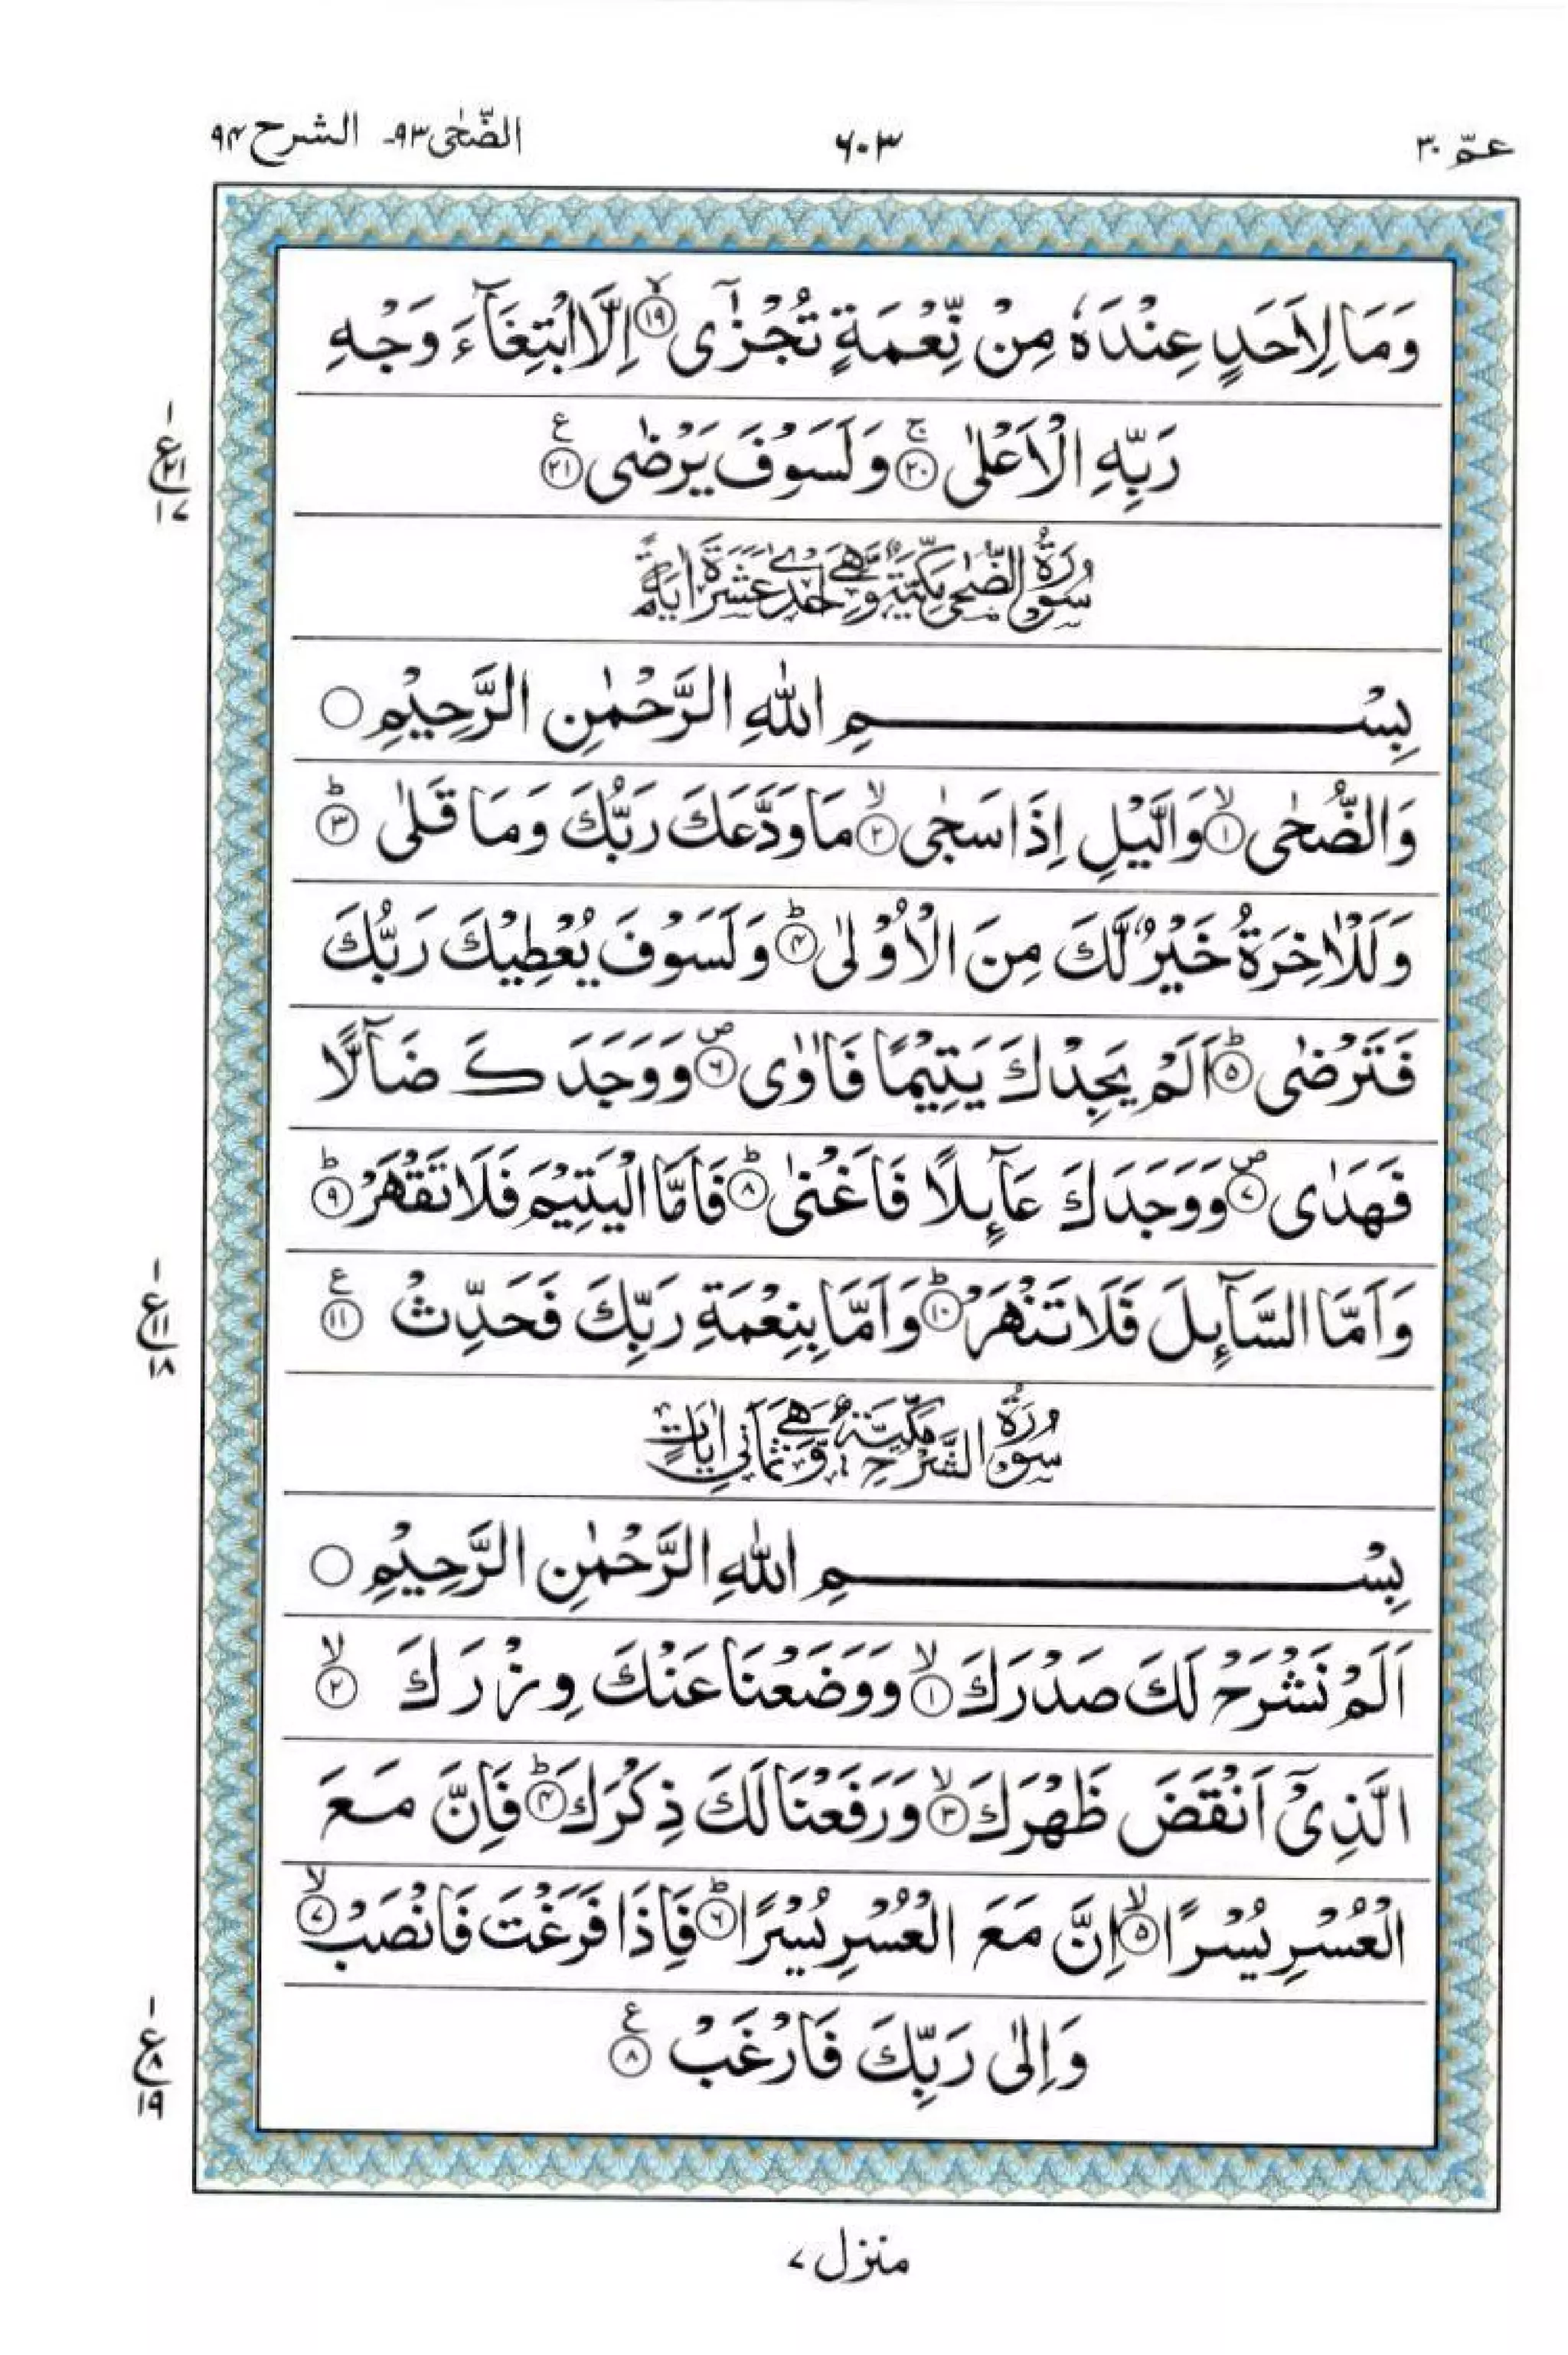 عمّ ٣٠
٦٠٣
الضّحٰى ٩٣۔ الشرح ٩۴
وَمَا لِاَحَدٍ عِنْدَهٗ مِنْ نِّعْمَةٍ تُجْزٰٓى ۙ﴿١٩﴾ اِلَّا ابْتِغَآءَ وَجْهِ
رَبِّهِ الْاَعْلٰى ۚ﴿٢٠﴾ وَلَسَوْفَ يَرْضٰى ﴿٢١﴾ ع
١ ع ٢١ ١٧
سُوْرَةُ الضُّحٰى مَكِّيَّةٌ وَّهِيَ اِحْدٰى عَشْرَةَ اٰيَةً
بِسْمِ اللّٰهِ الرَّحْمٰنِ الرَّحِيْمِ ○
وَالضُّحٰى ۙ﴿١﴾ وَالَّيْلِ اِذَا سَجٰى ۙ﴿٢﴾ مَا وَدَّعَكَ رَبُّكَ وَمَا قَلٰى ؕ﴿٣﴾
وَلَلْاٰخِرَةُ خَيْرٌ لَّكَ مِنَ الْاُوْلٰى ؕ﴿۴﴾ وَلَسَوْفَ يُعْطِيْكَ رَبُّكَ
فَتَرْضٰى ؕ﴿۵﴾ اَلَمْ يَجِدْكَ يَتِيْمًا فَاٰوٰى ۪﴿٦﴾ وَوَجَدَكَ ضَآلًّا
فَهَدٰى ۪﴿٧﴾ وَوَجَدَكَ عَآئِلًا فَاَغْنٰى ؕ﴿٨﴾ فَاَمَّا الْيَتِيْمَ فَلَا تَقْهَرْ ؕ﴿٩﴾
وَاَمَّا السَّآئِلَ فَلَا تَنْهَرْ ؕ﴿١٠﴾ وَاَمَّا بِنِعْمَةِ رَبِّكَ فَحَدِّثْ ﴿١١﴾ ع
١ ع ١١ ١٨
سُوْرَةُ الشَّرْحِ مَكِّيَّةٌ وَّهِيَ ثَمَانِي اٰيَاتٍ
بِسْمِ اللّٰهِ الرَّحْمٰنِ الرَّحِيْمِ ○
اَلَمْ نَشْرَحْ لَكَ صَدْرَكَ ۙ﴿١﴾ وَوَضَعْنَا عَنْكَ وِزْرَكَ ۙ﴿٢﴾
الَّذِيْٓ اَنْقَضَ ظَهْرَكَ ۙ﴿٣﴾ وَرَفَعْنَا لَكَ ذِكْرَكَ ؕ﴿۴﴾ فَاِنَّ مَعَ
الْعُسْرِ يُسْرًا ۙ﴿۵﴾ اِنَّ مَعَ الْعُسْرِ يُسْرًا ؕ﴿٦﴾ فَاِذَا فَرَغْتَ فَانْصَبْ ۙ﴿٧﴾
وَاِلٰى رَبِّكَ فَارْغَبْ ﴿٨﴾ ع
١ ع ٨ ١٩
منزل ٧